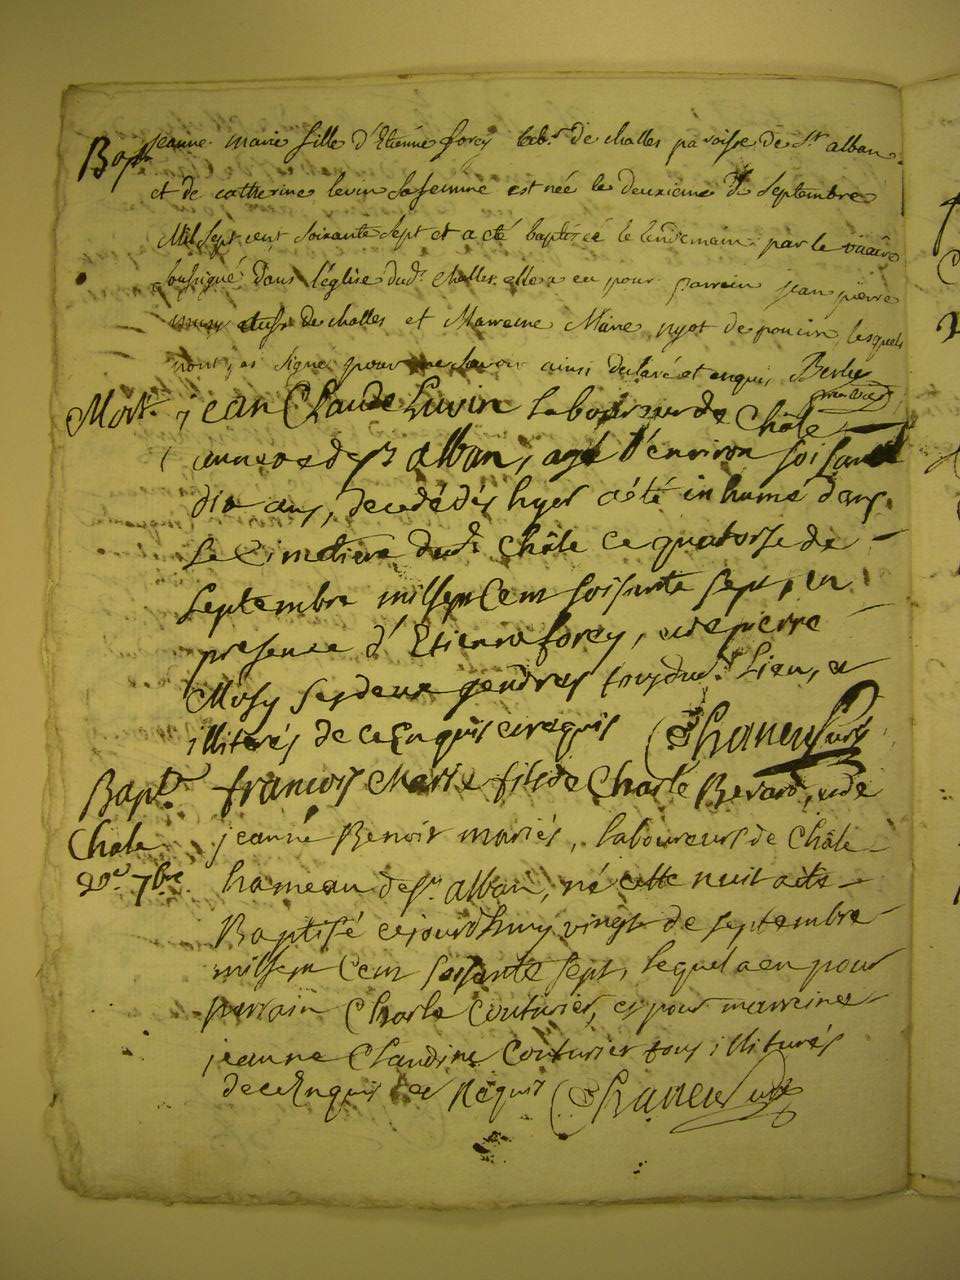 Bapt. jeanne marie fille d'Etienne forey lab.r de challes paroisse de St alban
et de catherine levin sa femme est née le deuxieme de septembre
Mil sept cent soixante sept et a eté baptisée le lendemain par le vicaire
soussigné dans l'église dud.t challes elle a eu pour parrain jean pierre
aussi de challes et Marreine Marie nyot de poncin, lesquels
n'ont signé pour ne sçavoir ainsi declaré et enquis Berlie
vicaire
Mort. jean Claude Luvin laboureur de Châle
annexe de St alban, agé d'environ soisante
dix ans, decedé dés hyer a été inhumé dans
le Cimetiere dud.t Châle ce quatorse de
septembre mil sept Cent soisante sept, en
presence d'Etienne forey, et de pierre
Mosy ses deux gendres tous dud.t Lieu, et
illiterés de ce Enquis et requis Chaneu Curé
Bapt.e francois Marie fils de Charle Berard, et de
Chale jeanne Benoit mariés, laboureurs de Châle
20.e 7bre. hameau de St alban, né cette nuit a été
Baptisé cejourdhuy vingt de septembre
mil sept Cent soisante sept, lequel a eu pour
parrain Charle Couturier, et pour marreine
jeanne Claudine Couturier tous illiturés
de ce Enquis et Requis Chaneu Curé